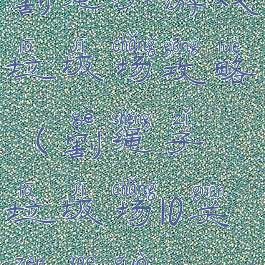 lā jī chǎng gōng lüè
垃圾场攻略
gē shéng zi
(割绳子
lā jī chǎng guān
垃圾场10关
zěn me guò